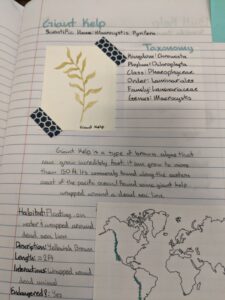 Giant Kelp
Scientific Name: Macrocystis Pyrifera
Taxonomy
Kingdom: Chromista
Phylum: Ochrophyta
Class: Phaeophyceae
Order: Laminariales
Family: Laminariaceae
Genus: Macrocystis
Giant Kelp
Giant Kelp is a type of brown algae that
can grow incredibly fast. It can grow to more
than 150 ft. It's commonly found along the eastern
coast of the pacific ocean. Found some giant kelp
wrapped around a dead sea lion.
Habitat: Floating on
water & wrapped around
dead sea lion
Description: Yellowish Brown
Length: ≈ 2ft
Interactions: Wrapped around
dead animal
Endangered?: Yes